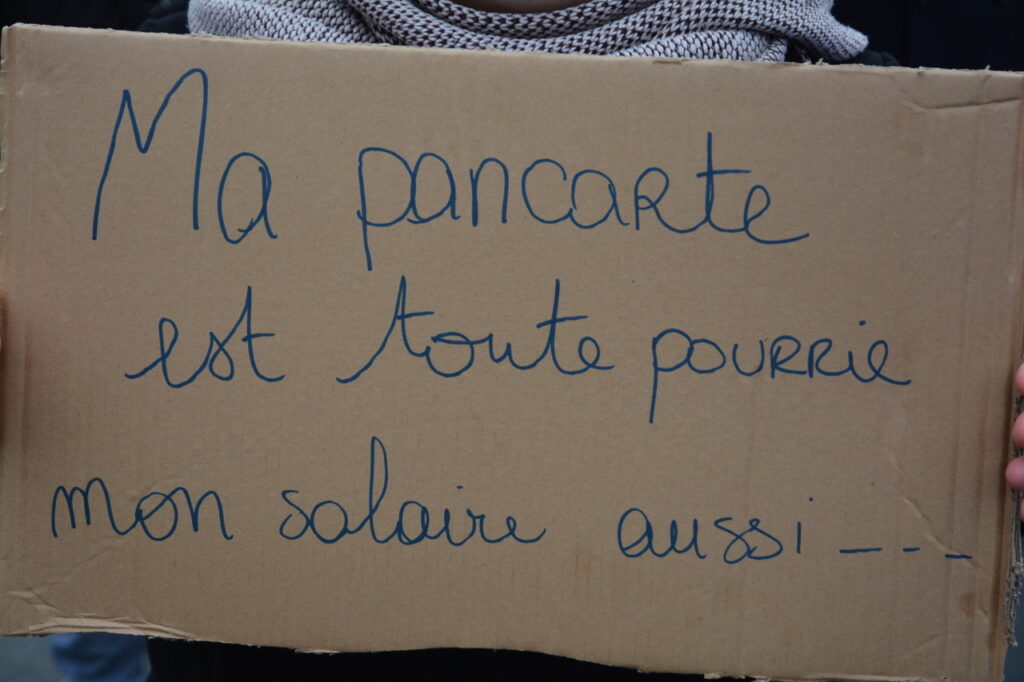 Ma pancarte
est toute pourrie
mon salaire aussi ---